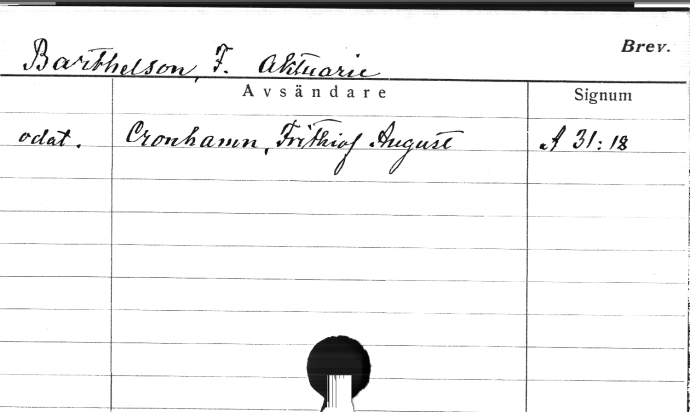 Brev.
Barthelson, F. Aktuarie
Avsändare Signum
odat. Cronhamn, Frithiof August A 31:18